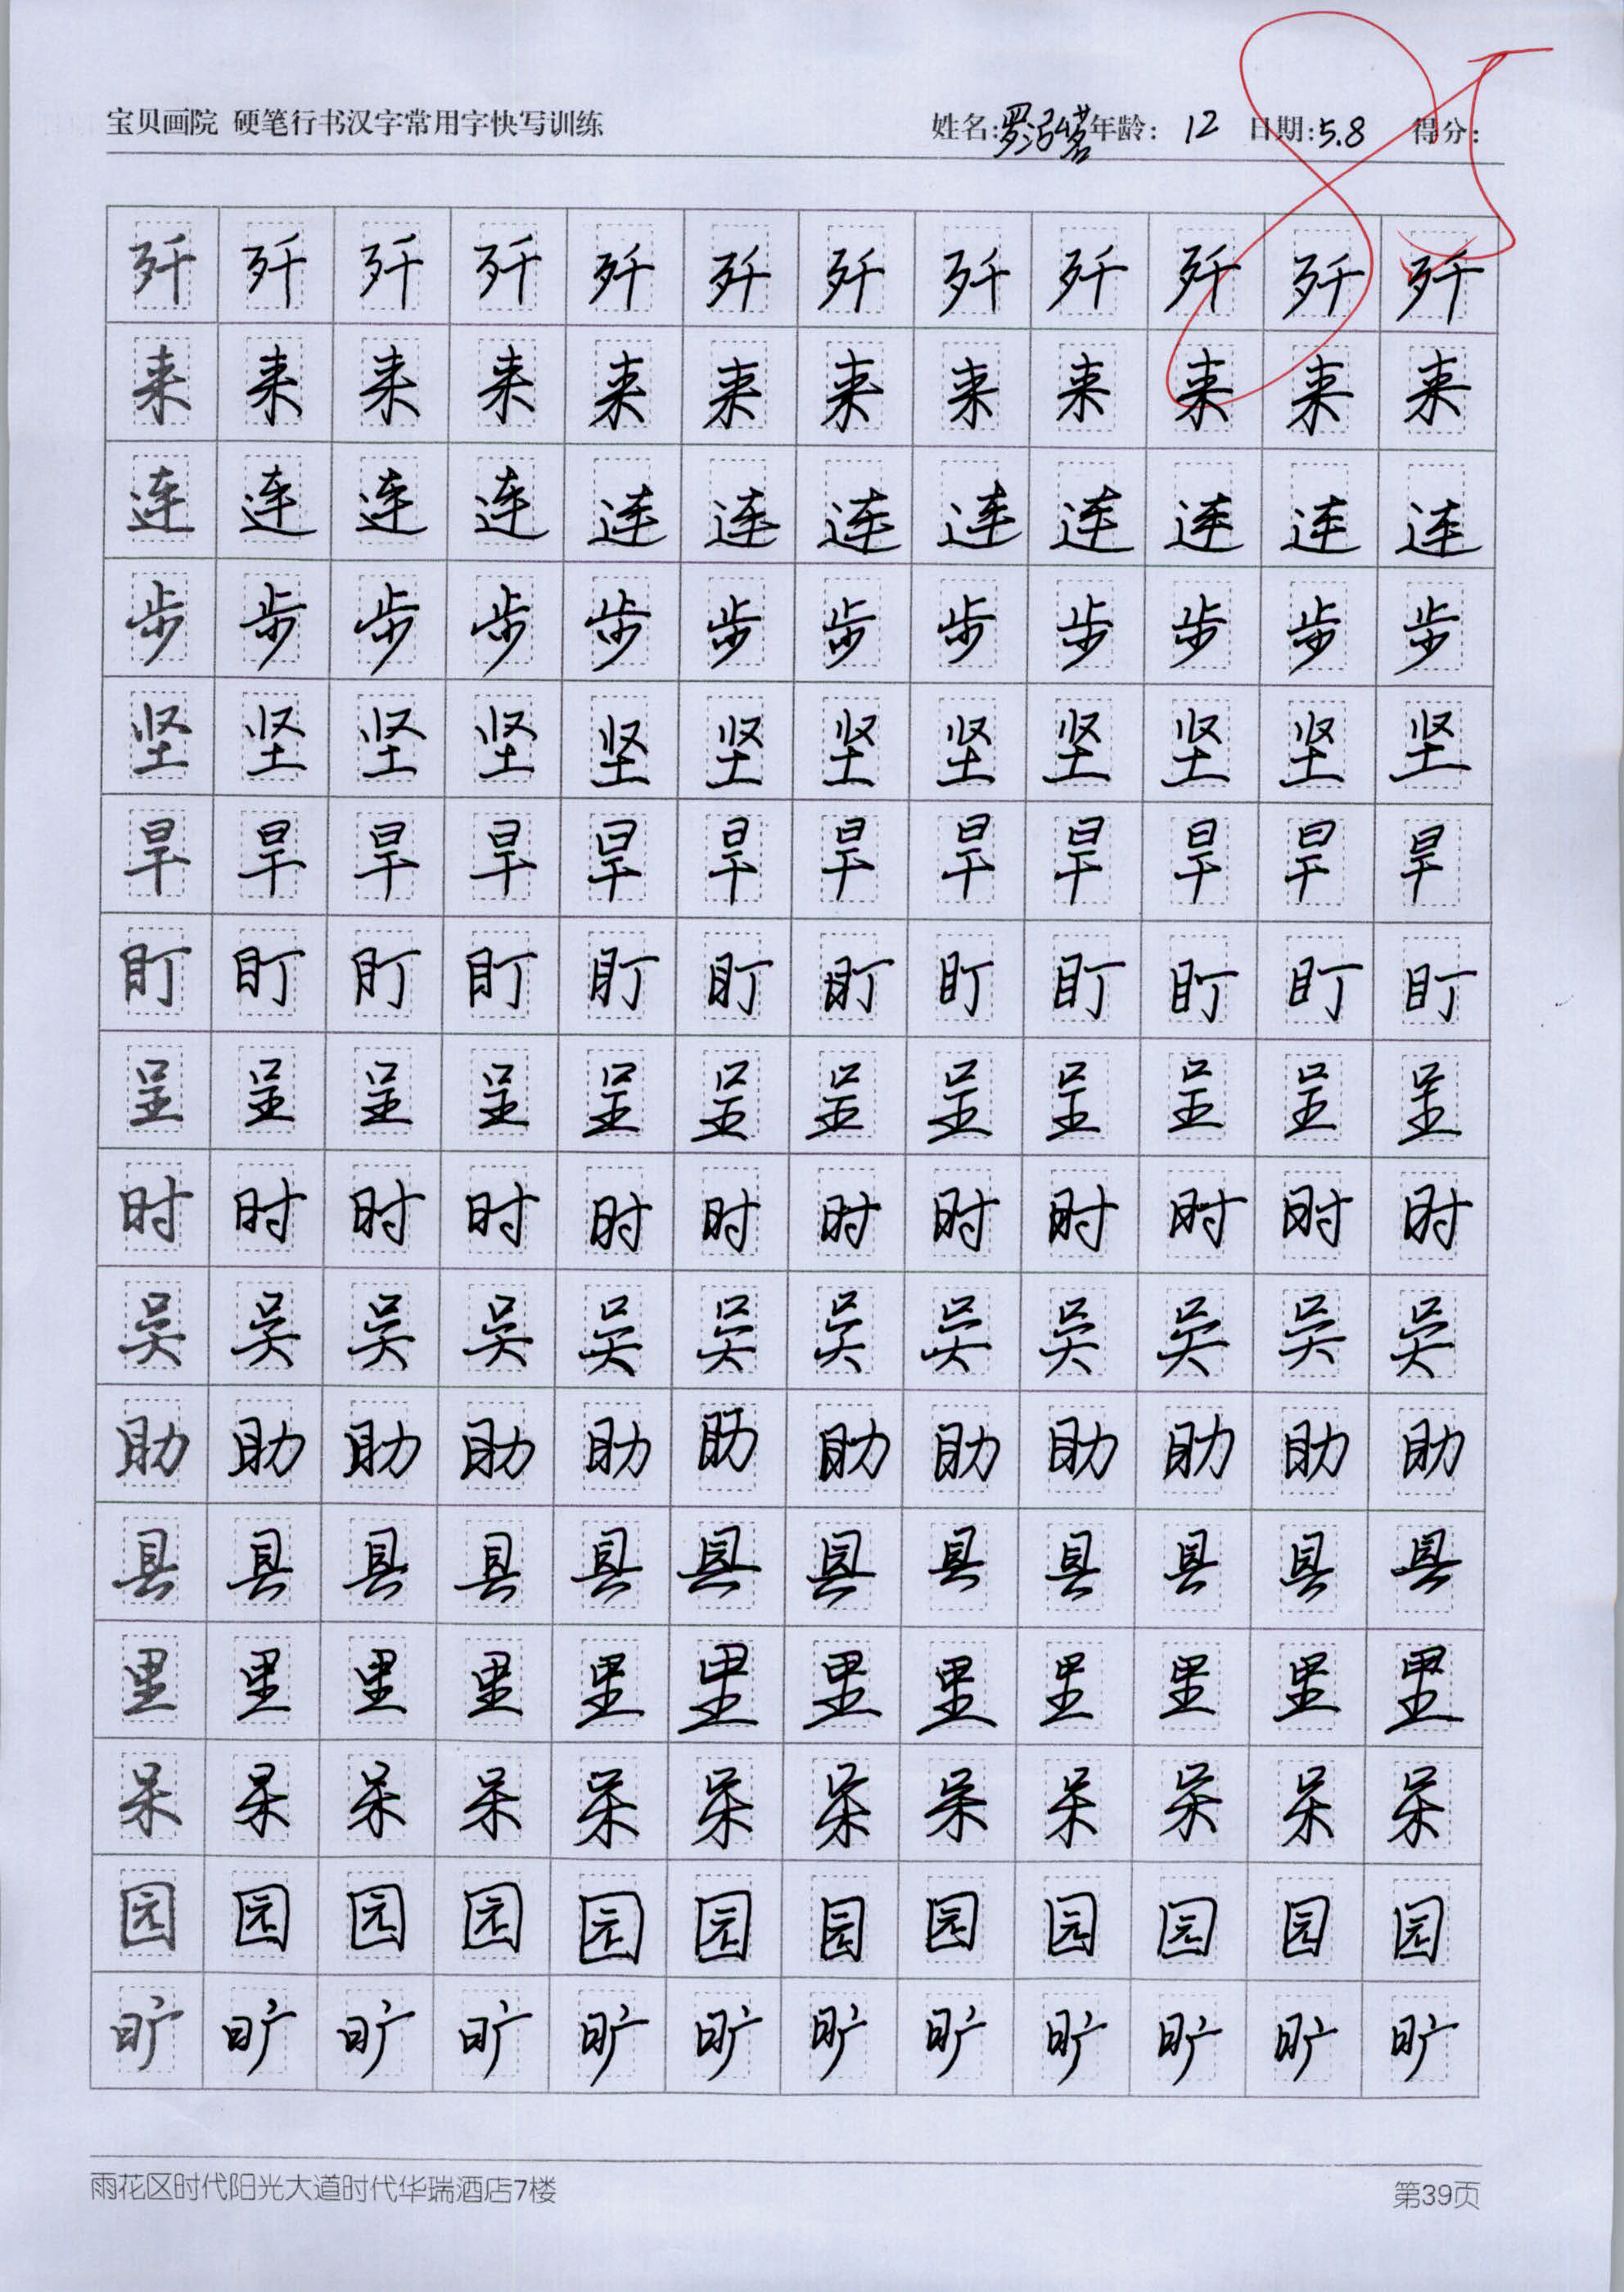 宝贝画院 硬笔行书汉字常用字快写训练
姓名: 年龄: 12 日期: 5.8 得分: 85
歼 歼 歼 歼 歼 歼 歼 歼 歼 歼 歼 歼
来 来 来 来 来 来 来 来 来 来 来 来
连 连 连 连 连 连 连 连 连 连 连 连
步 步 步 步 步 步 步 步 步 步 步 步
坚 坚 坚 坚 坚 坚 坚 坚 坚 坚 坚 坚
旱 旱 旱 旱 旱 旱 旱 旱 旱 旱 旱 旱
盯 盯 盯 盯 盯 盯 盯 盯 盯 盯 盯 盯
呈 呈 呈 呈 呈 呈 呈 呈 呈 呈 呈 呈
时 时 时 时 时 时 时 时 时 时 时 时
吴 吴 吴 吴 吴 吴 吴 吴 吴 吴 吴 吴
助 助 助 助 助 助 助 助 助 助 助 助
县 县 县 县 县 县 县 县 县 县 县 县
里 里 里 里 里 里 里 里 里 里 里 里
呆 呆 呆 呆 呆 呆 呆 呆 呆 呆 呆 呆
园 园 园 园 园 园 园 园 园 园 园 园
旷 旷 旷 旷 旷 旷 旷 旷 旷 旷 旷 旷
雨花区时代阳光大道时代华瑞酒店7楼 第39页